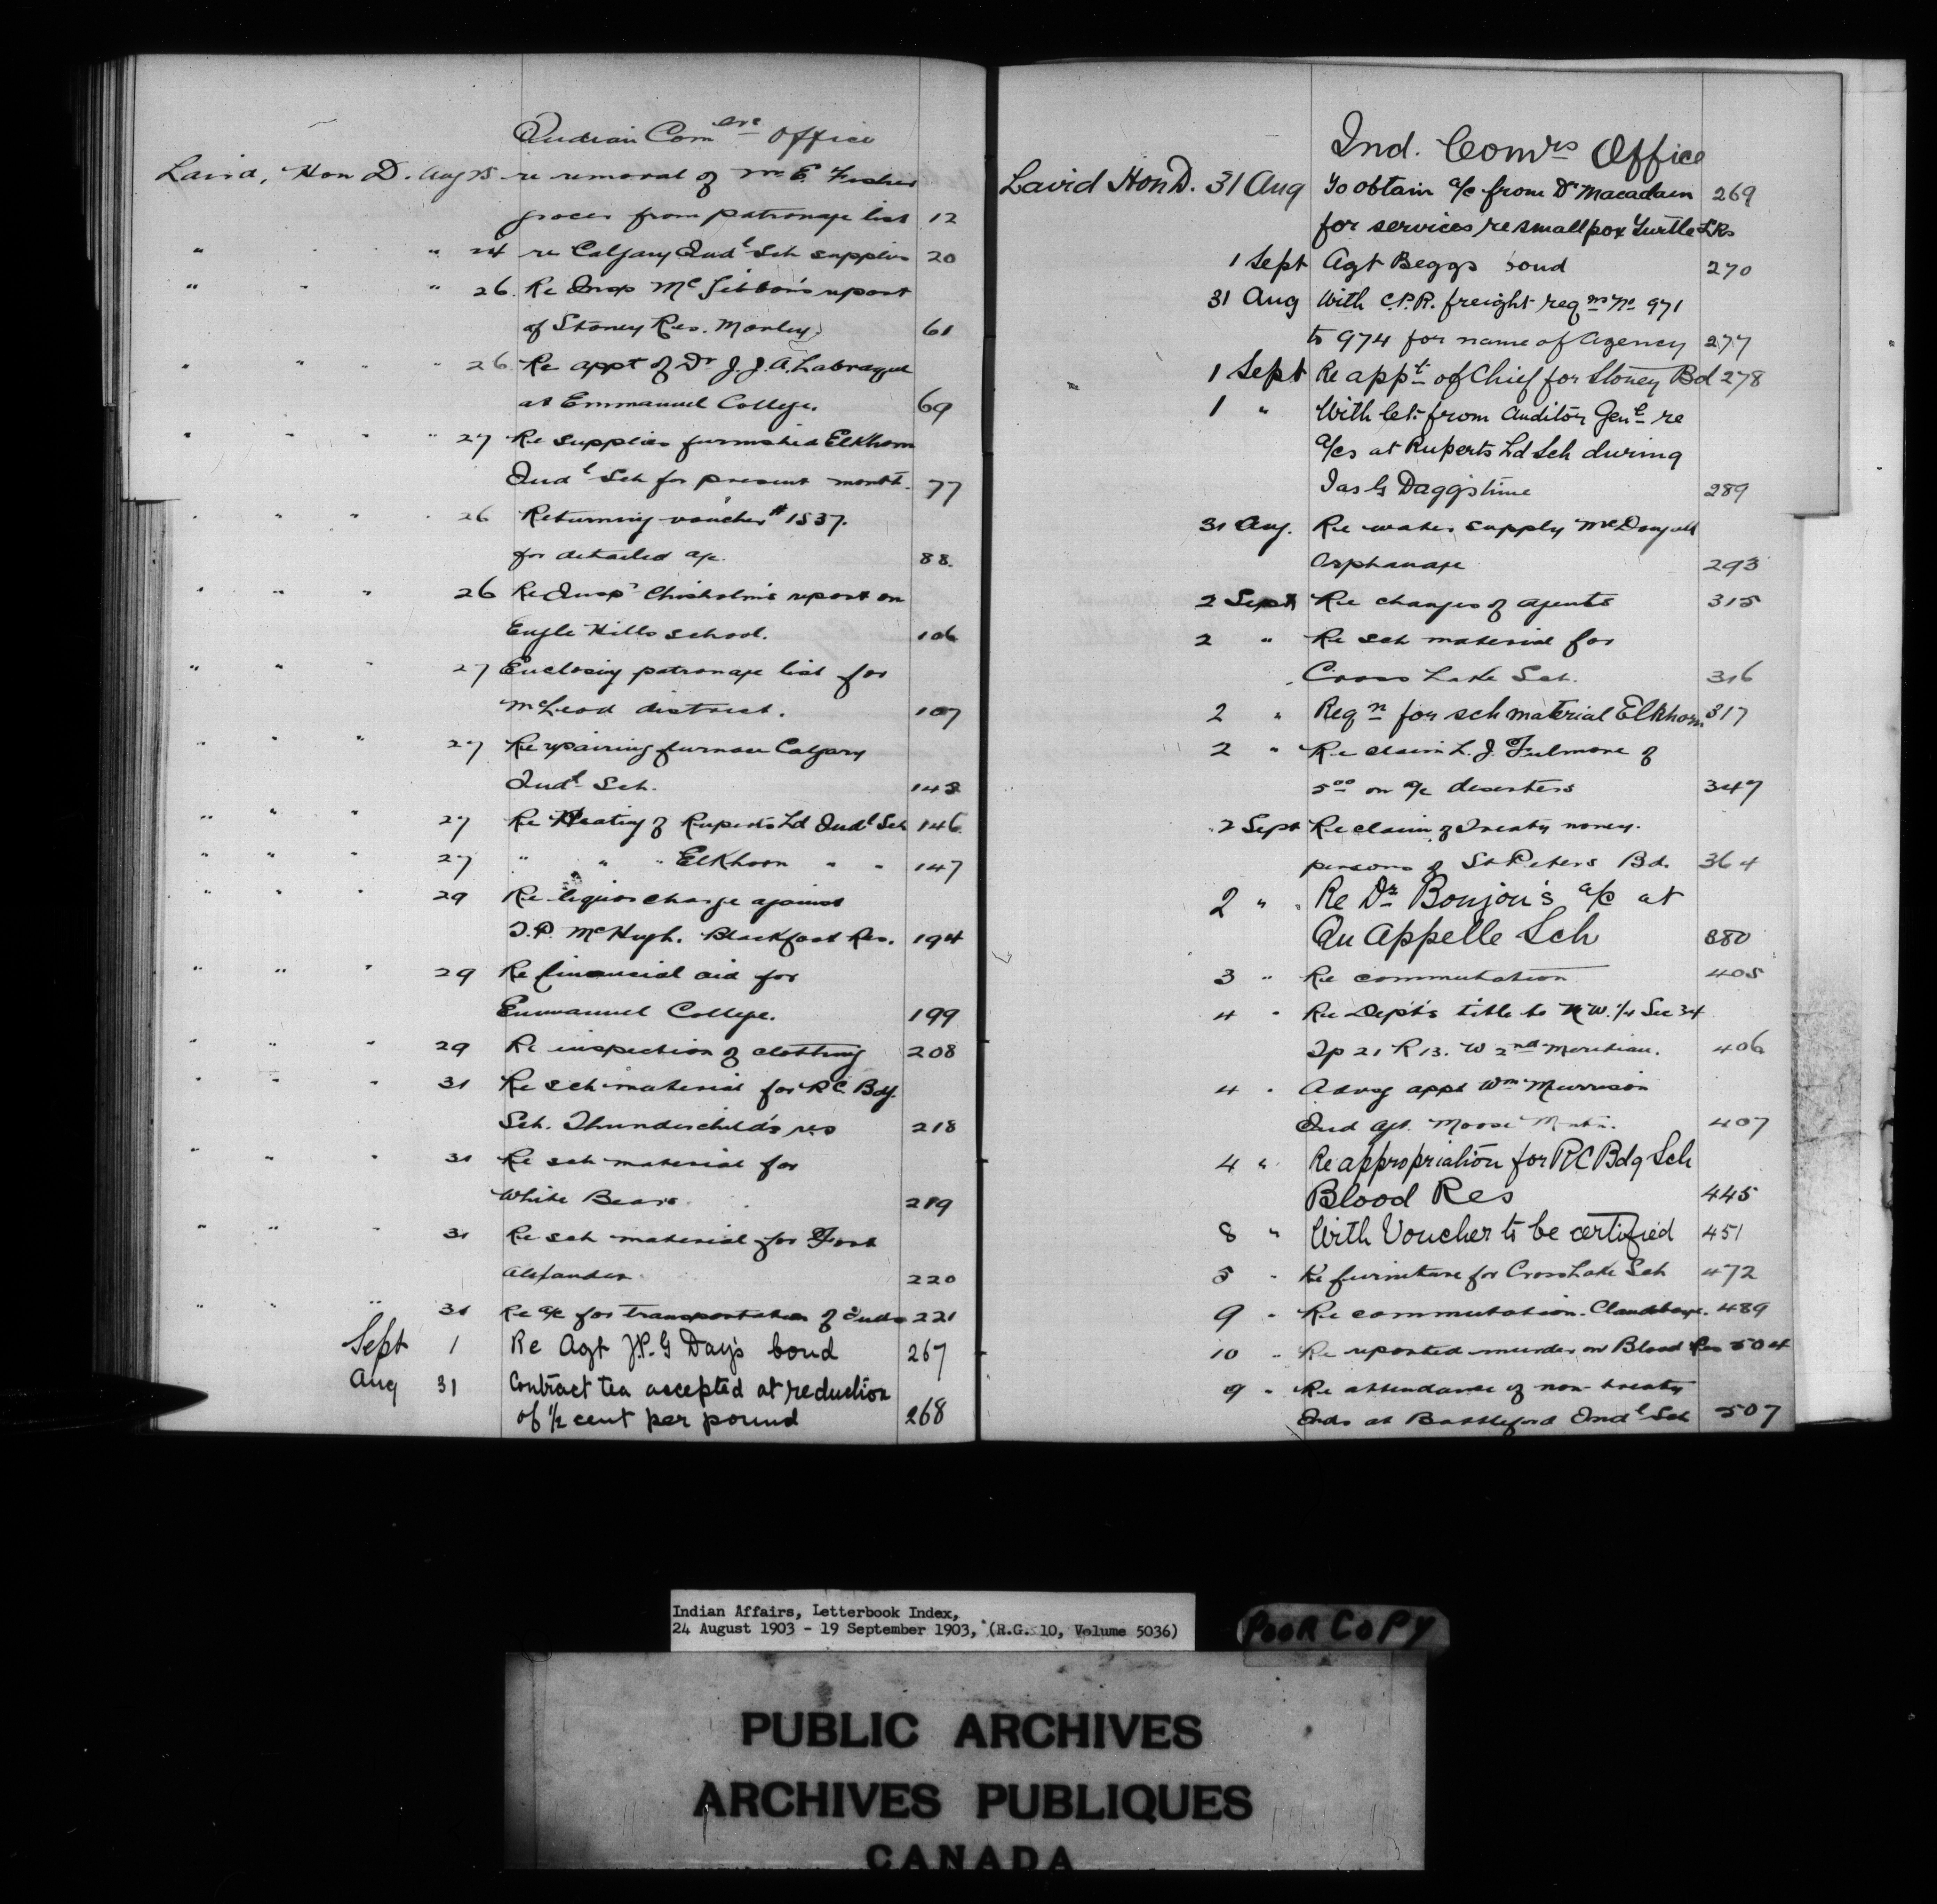 Indian Com<sup>ers</sup> Office
Laird, Hon D. Aug 25 re removal of Mr E. Fisher
grocer from patronage list 12
" " " " 24 re Calgary Ind<sup>l</sup> Sch supplies 20
" " " 26. Re Insp McGibbon's report
of Stoney Res. Morley 61
" " " 26 Re appt of Dr J. J. A. Labrayne
at Emmanuel College. 69
" " " " 27 Re supplies furnished Elkhorn
Ind<sup>l</sup> Sch for present month. 77
" " " " 26 Returning voucher # 1537.
for detailed a/c. 88.
" " " 26 Re Insp<sup>r</sup> Chisholm's report on
Eagle Hills school. 106
" " " 27 Enclosing patronage list for
McLeod district. 107
" " " 27 Re repairing furnace Calgary
Ind<sup>l</sup> Sch. 143
" " " 27 Re Heating of Ruperts Ld Ind<sup>l</sup> Sch 146
" " " 27 " " " Elkhorn " " 147
" " " 29 Re liquor charge against
T. P. McHugh. Blackfoot Res. 194
" " " 29 Re financial aid for
Emmanuel College. 199
" " " 29 Re inspection of clothing 208
" " " 31 Re sch material for R C. Bdg.
Sch. Thunderchild's res 218
" " " 31 Re sch material for
White Bears. 219
" " " 31 Re sch material for Fort
Alexander. 220
" " " 31 Re a/c for transportation of Inds 221
Sept 1 Re Agt J.P. G Day's bond 267
Aug 31 Contract tea accepted at reduction
of 1/2 cent per pound 268
Ind. Comrs Office
Laird Hon D. 31 Aug To obtain a/c from Dr Macadam 269
for services re smallpox Turtle L Rs
1 Sept Agt Beggs bond 270
31 Aug With C.P.R. freight reqns No 971
to 974 for name of Agency 277
1 Sept Re app<sup>t</sup> of Chief for Stoney Bd 278
1 " With let. from Auditor Gen<sup>l</sup> re
a/cs at Ruperts Ld Sch during
Jas G Dagg's time 289
31 Aug. Re water supply McDougall
Orphanage 293
2 Sept Re changes of agents 315
2 " Re sch material for
Cross Lake Sch. 316
2 " Req<sup>n</sup> for sch material Elkhorn 317
2 " Re claim L. J. Fulmore of
5<sup>00</sup> on a/c deserters 347
2 Sept Re claim of Treaty money.
persons of St Peters Bd. 364
2 " Re Dr Boujou's a/c at
Qu Appelle Sch 380
3 " Re commutation 405
4 " Re Dept's title to N W. 1/4 Sec 34
Tp 21 R 13. W 2<sup>nd</sup> Meridian. 406
4 " Advsg appt Wm Murrison
Ind Agt. Moose Mntn. 407
4 " Re appropriation for RC Bdg Sch
Blood Res 445
8 " With Voucher to be certified 451
5 " Re furniture for Cross Lake Sch 472
9 " Re commutation. Clandeboye. 489
10 " Re reported murder on Blood Res 504
9 " Re attendance of non treaty
Inds at Battleford Ind<sup>l</sup> Sch 507
Indian Affairs, Letterbook Index,
24 August 1903 - 19 September 1903, (R.G. 10, Volume 5036)
POOR COPY
PUBLIC ARCHIVES
ARCHIVES PUBLIQUES
CANADA